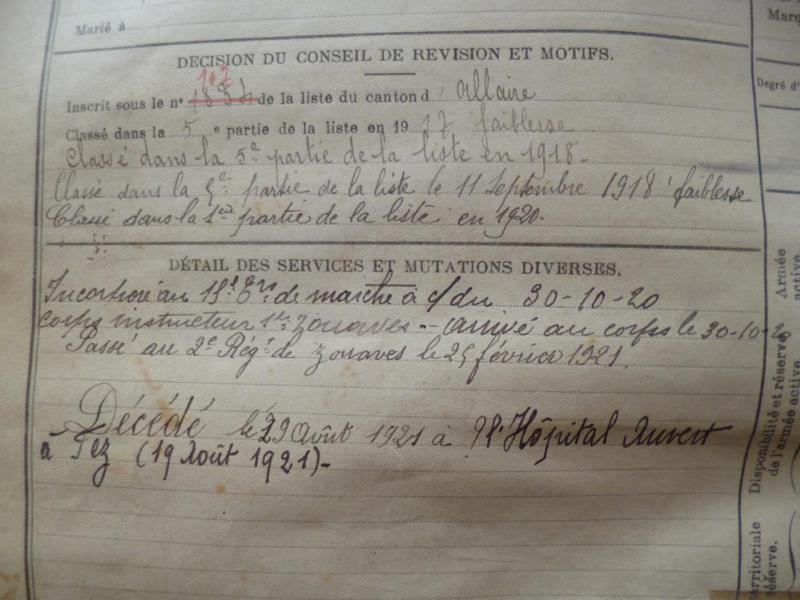 Marié à
DÉCISION DU CONSEIL DE REVISION ET MOTIFS.
107
Inscrit sous le n° de la liste du canton d' Allaire
Classé dans la 5 e partie de la liste en 1917 faiblesse
Classé dans la 5e partie de la liste en 1918.
Classé dans la 5e partie de la liste le 11 Septembre 1918 faiblesse
Classé dans la 1ère partie de la liste en 1920.
DÉTAIL DES SERVICES ET MUTATIONS DIVERSES.
Incorporé au de marche à c/ du 30-10-20
Corps instructeur 1er Zouaves - arrivé au corps le 30-10-20
Passé au 2e Régt de Zouaves le 25 février 1921.
Décédé le 29 Août 1921 à l'Hôpital Auvert
à Fez (19 Août 1921)-
Marq
Degré d'
Armée
active
Disponibilité et réserve
de l'armée active.
erritoriale
réserve.